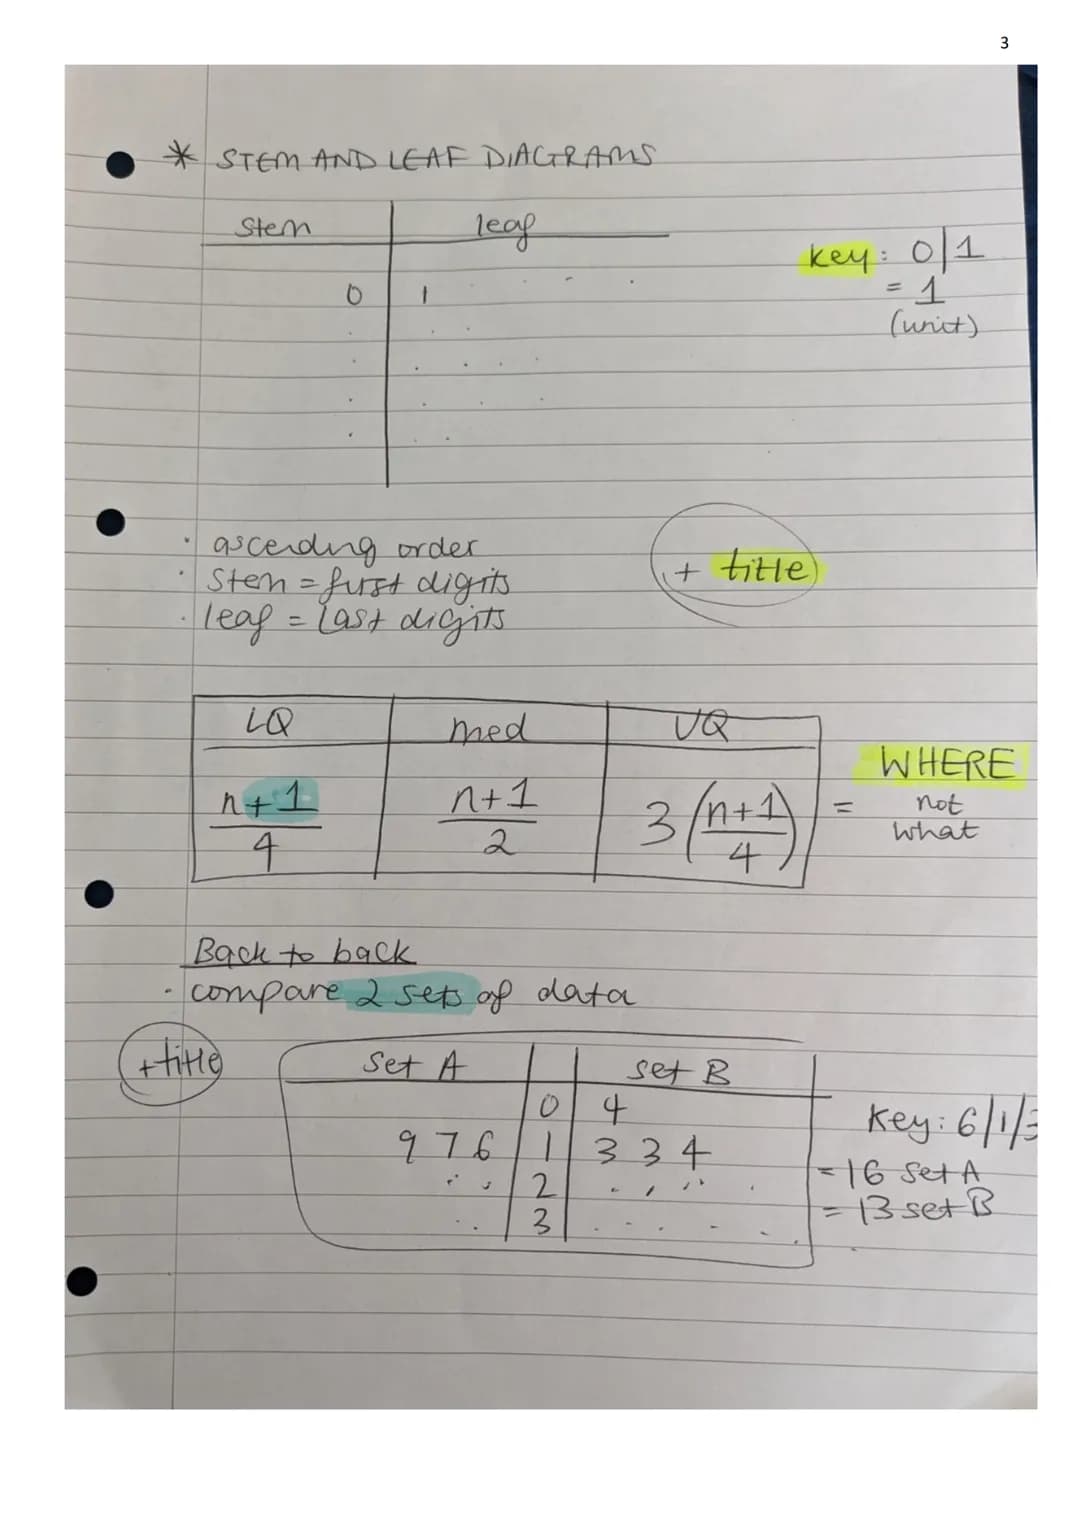 3
* STEM AND LEAF DIAGRAMS
Stem leaf
key: 0|1
0 1 = 1
(unit)
· ascending order
· Stem = first digits
+ title
· leaf = last digits
LQ med UQ
WHERE
n+1 n+1 3(n+1) = not
4 2 4 what
Back to back
· compare 2 sets of data
+title
Set A set B
0 4
Key: 6/1/3
9 7 6 1 3 3 4
= 16 Set A
2
= 13 set B
3